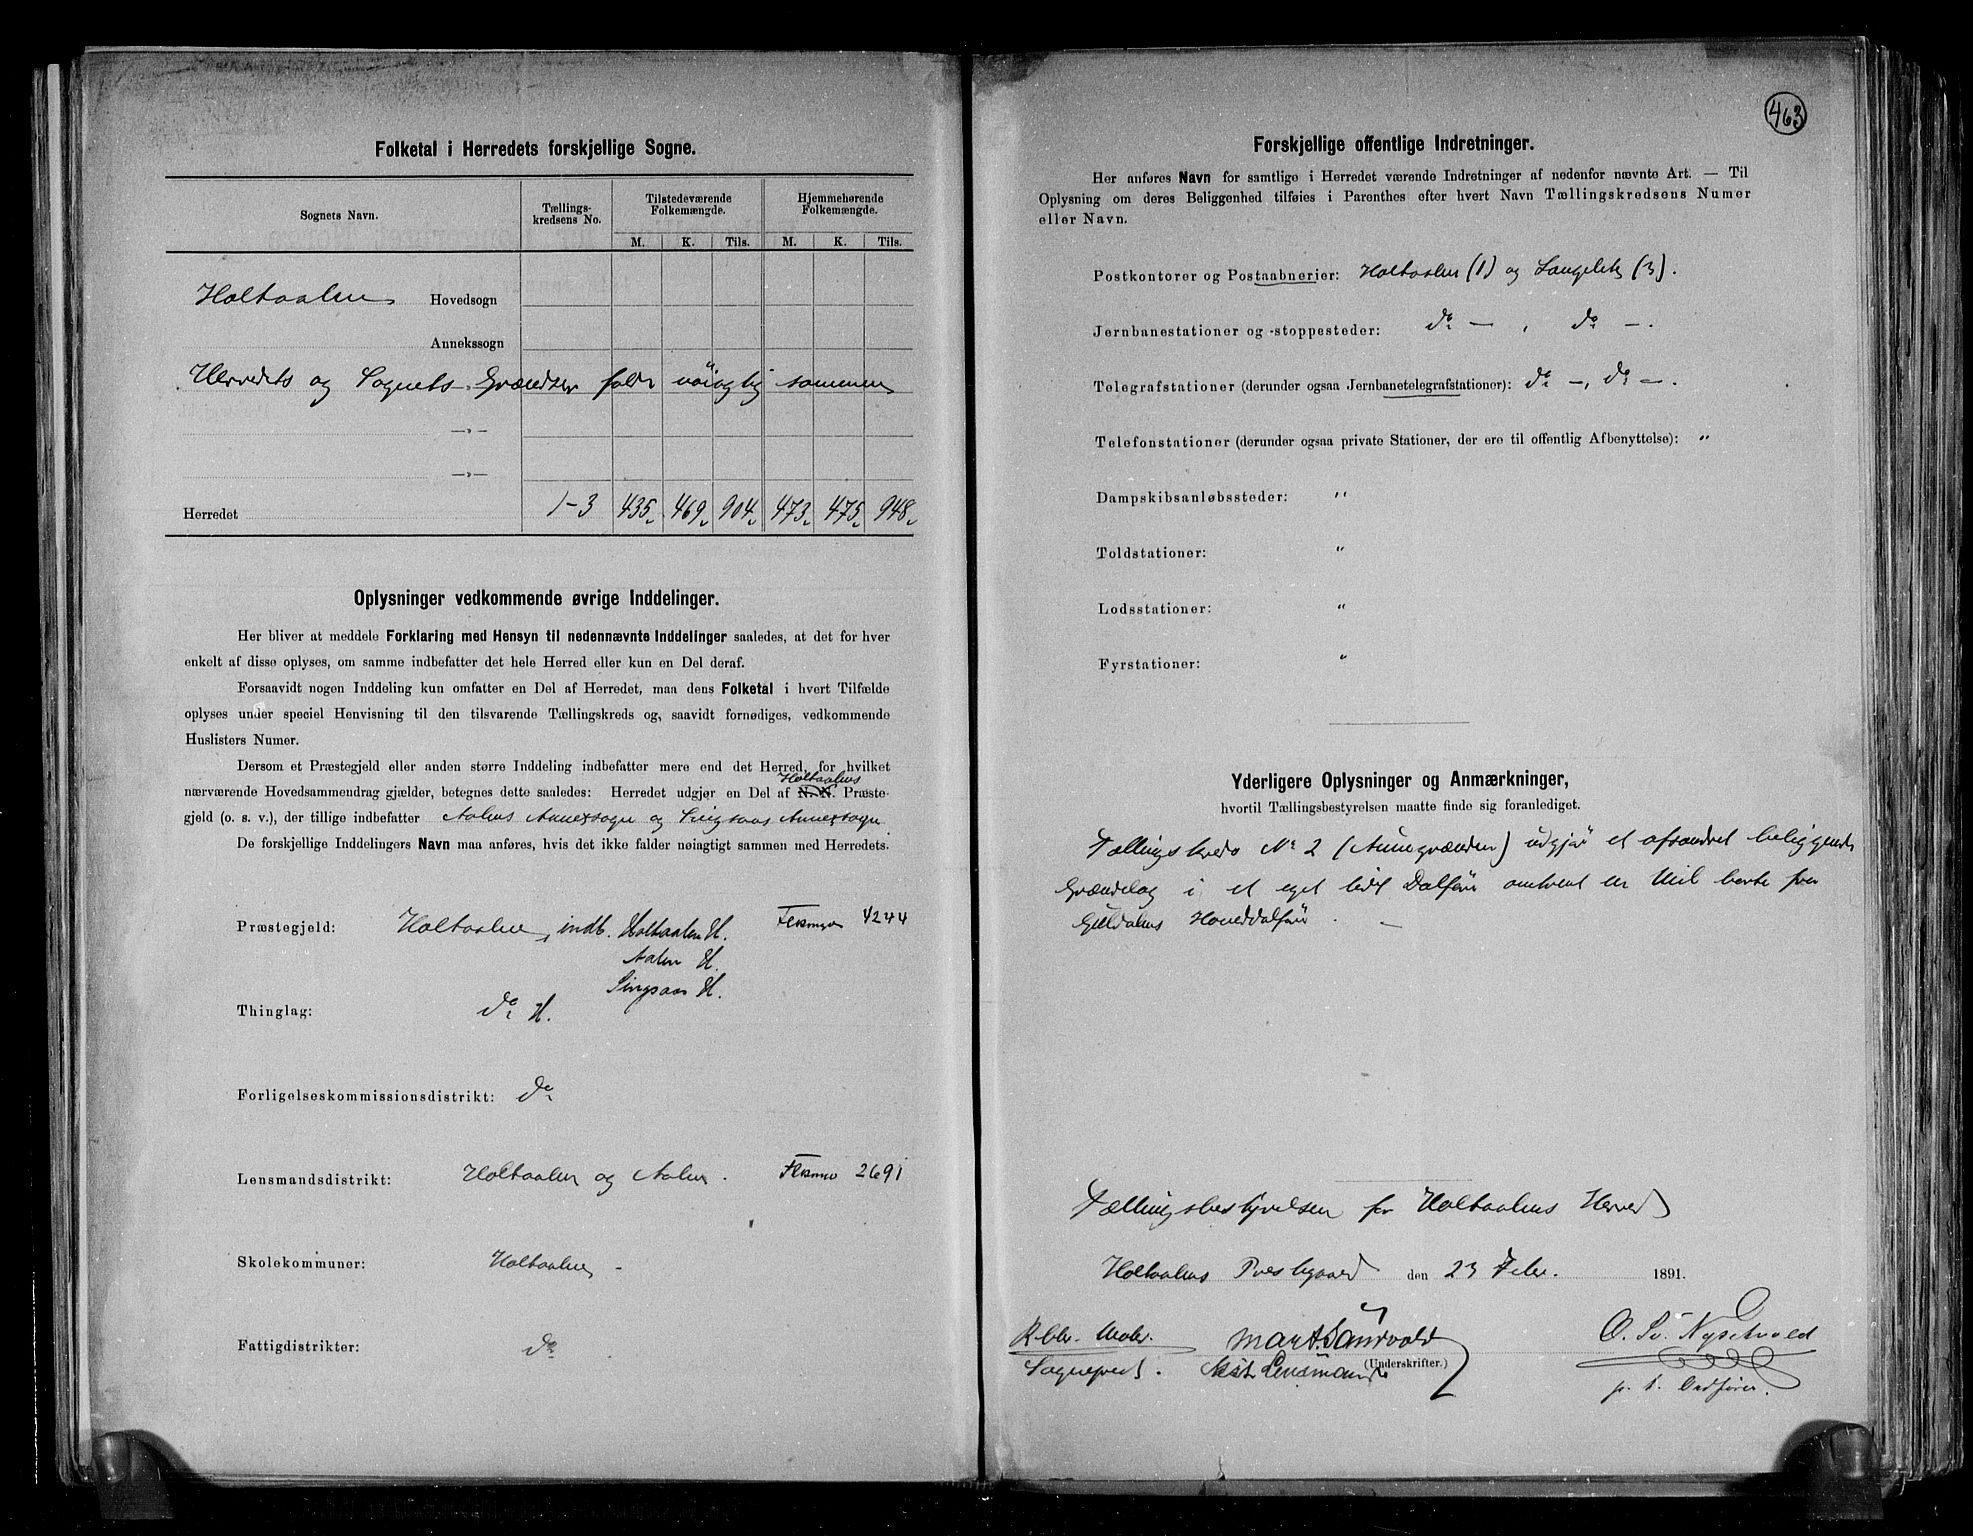 Folketal i Herredets forskjellige Sogne.
Sognets Navn.
Tællings-
kredsens No.
Tilstedeværende
Folkemængde.
Hjemmehørende
Folkemængde.
M. K. Tils. M. K. Tils.
Holtaalen Hovedsogn
Annekssogn
Herredets og Sognets Grændser falde nöiagtig sammen
—»—
—»—
Herredet 1-3 435 469 904 473 475 948
Oplysninger vedkommende øvrige Inddelinger.
Her bliver at meddele Forklaring med Hensyn til nedennævnte Inddelinger saaledes, at det for hver
enkelt af disse oplyses, om samme indbefatter det hele Herred eller kun en Del deraf.
Forsaavidt nogen Inddeling kun omfatter en Del af Herredet, maa dens Folketal i hvert Tilfælde
oplyses under speciel Henvisning til den tilsvarende Tællingskreds og, saavidt fornødiges, vedkommende
Huslisters Numer.
Dersom et Præstegjeld eller anden større Inddeling indbefatter mere end det Herred, for hvilket
Holtaalens
nærværende Hovedsammendrag gjælder, betegnes dette saaledes: Herredet udgjør en Del af N. N. Præste-
gjeld (o. s. v.), der tillige indbefatter Aalens Annexsogn og Singsaas Annexsogn
De forskjellige Inddelingers Navn maa anføres, hvis det ikke falder nøiagtigt sammen med Herredets.
Præstegjeld: Holtaalen, indb. Holtaalen H. 4244
Aalen H.
Singsaas H.
Thinglag: do H.
Forligelseskommissionsdistrikt: do
Lensmandsdistrikt: Holtaalen og Aalen. 2691
Skolekommuner: Holtaalen -
Fattigdistrikter: do
463
Forskjellige offentlige Indretninger.
Her anføres Navn for samtlige i Herredet værende Indretninger af nedenfor nævnte Art. — Til
Oplysning om deres Beliggenhed tilføies i Parenthes efter hvert Navn Tællingskredsens Numer
eller Navn.
Postkontorer og Postaabnerier: Holtaalen (1) og Langelets (3).
Jernbanestationer og -stoppesteder: do — , do —.
Telegrafstationer (derunder ogsaa Jernbanetelegrafstationer): do —, do —.
Telefonstationer (derunder ogsaa private Stationer, der ere til offentlig Afbenyttelse): "
Dampskibsanløbssteder: "
Toldstationer: "
Lodsstationer: "
Fyrstationer: "
Yderligere Oplysninger og Anmærkninger,
hvortil Tællingsbestyrelsen maatte finde sig foranlediget.
Tællingskreds No 2 (Aunegrænden) udgjör et afsondret beliggende
Grændelag i et eget lidet Dalföre omtrent en Mil borte fra
Guldalens Hoveddalföre.
Tællingsbestyrelsen for Holtaalens Herred
Holtaalens Prestegaard den 23 Febr. 1891.
Mart. Sandvold O. Sv. Nysetvold
Sogneprest. Lensmand (Underskrifter.)
p. t. Ordförer.